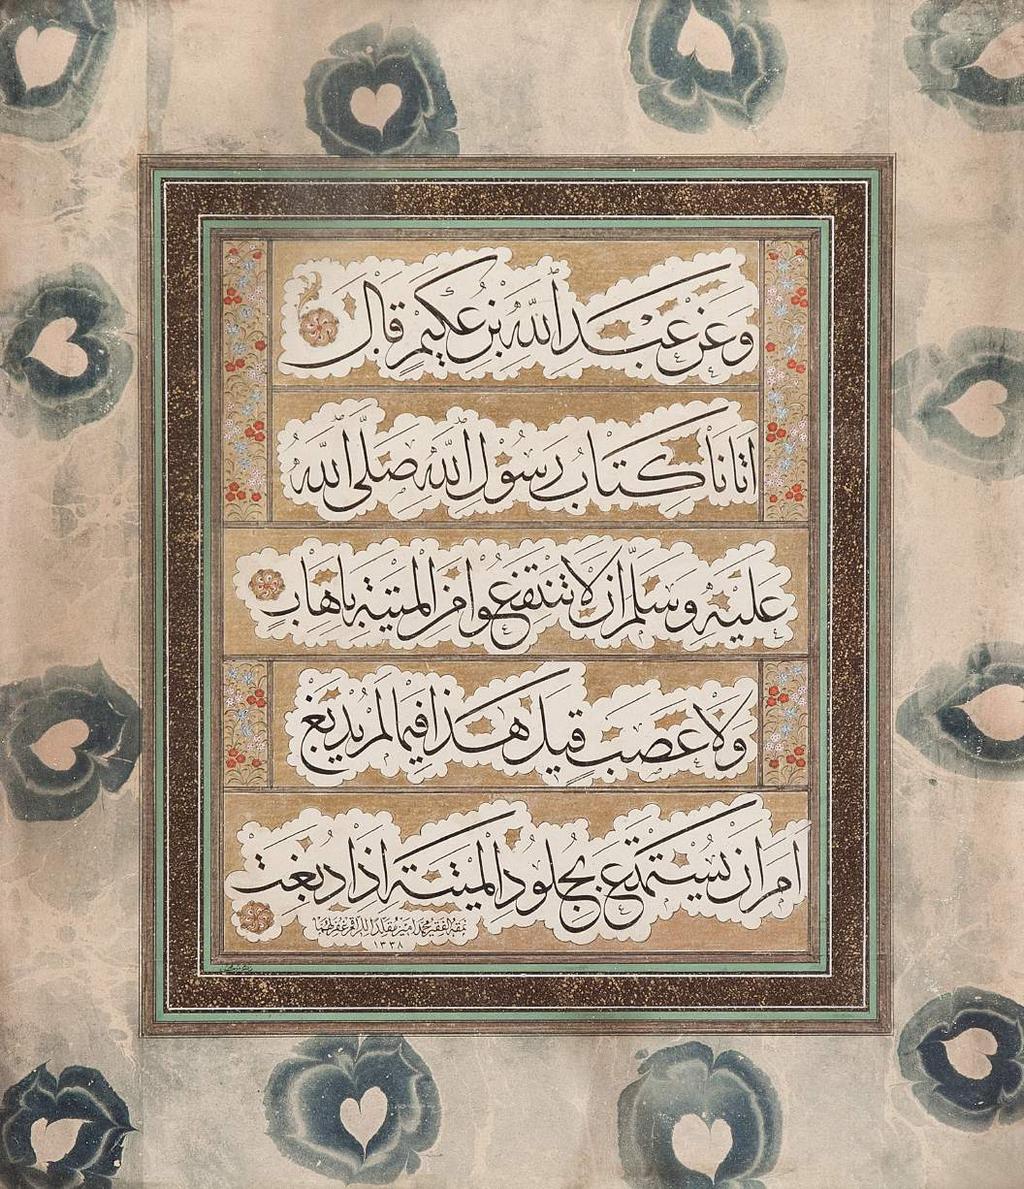 وعن عبد الله بن عكيم قال
اتانا كتاب رسول الله صلى الله
عليه وسلم ان لا تنتفعوا من الميتة باهاب
ولا عصب قيل هذا فيما لم يدبغ
امر ان يستمتع بجلود الميتة اذا دبغت
نمقه الفقير محمد امين غفر لهما
١٣٣٨